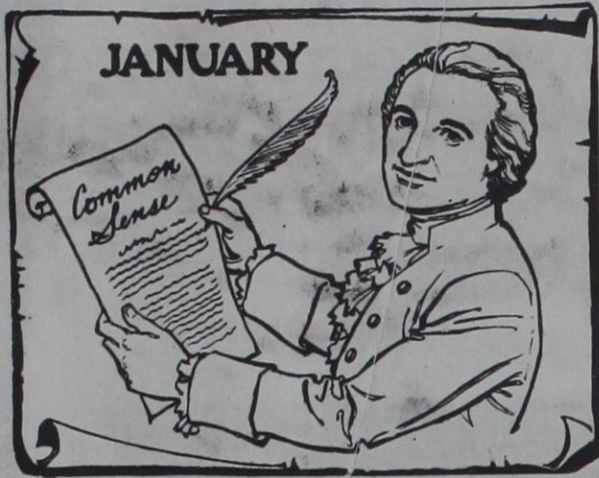 JANUARY
Common
Sense